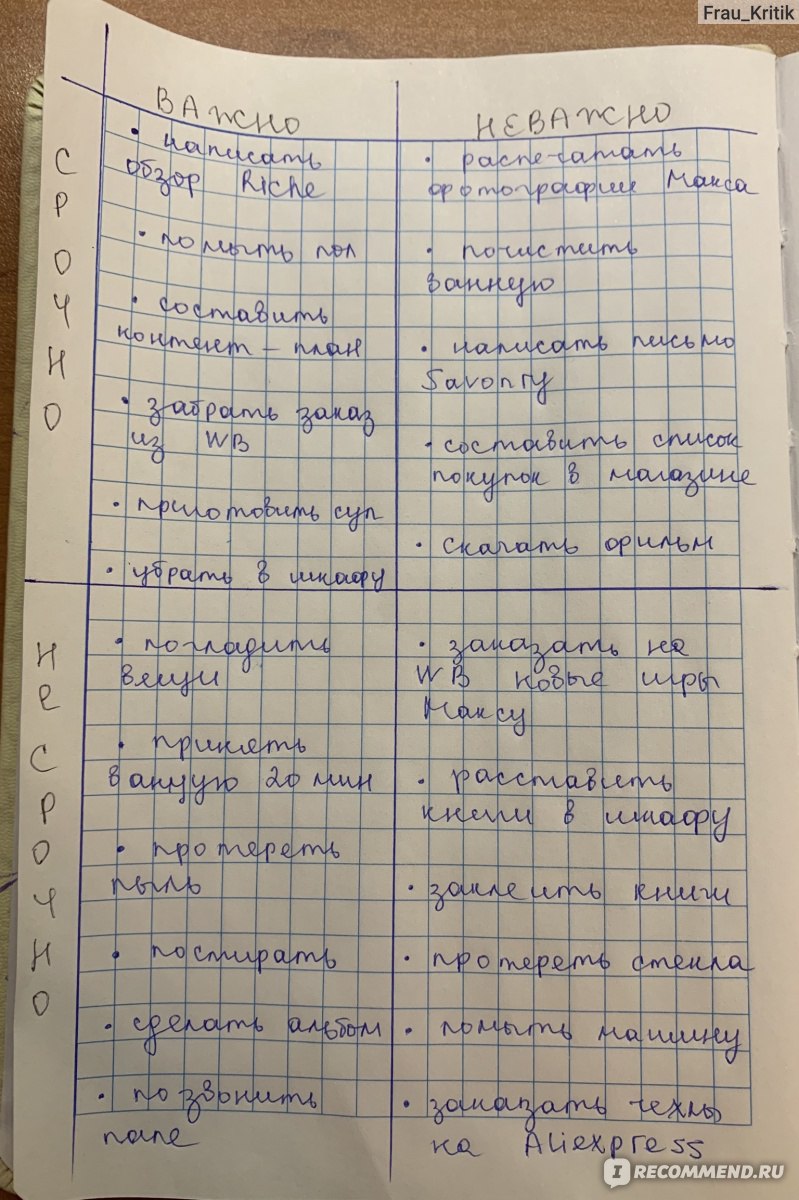 Frau_Kritik
ВАЖНО
НЕВАЖНО
СРОЧНО
• написать
обзор Riche
• помыть пол
• составить
контент – план
• забрать заказ
из WB
• приготовить суп
• убрать в шкафу
• распечатать
фотографии Макса
• почистить
ванную
• написать письмо
Savonry
• составить список
покупок в магазине
• скачать фильм
НЕ СРОЧНО
• погладить
вещи
• принять
ванную 20 мин
• протереть
пыль
• постирать
• сделать альбом
• позвонить
папе
• заказать на
WB новые игры
Максу
• расставить
книги в шкафу
• заклеить книги
• протереть стекла
• помыть машину
• заказать чехлы
на Aliexpress
IRECOMMEND.RU